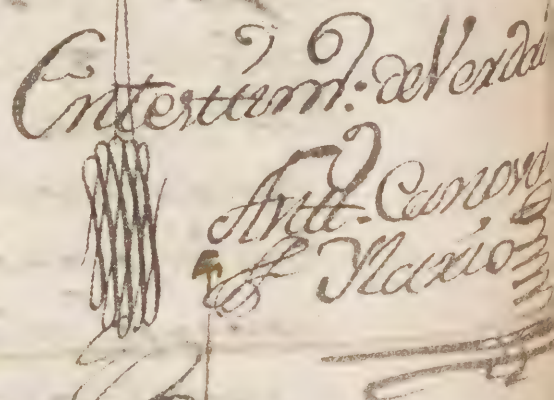 En testtim.º: de Verdad
Antt.º Canova
Ylario